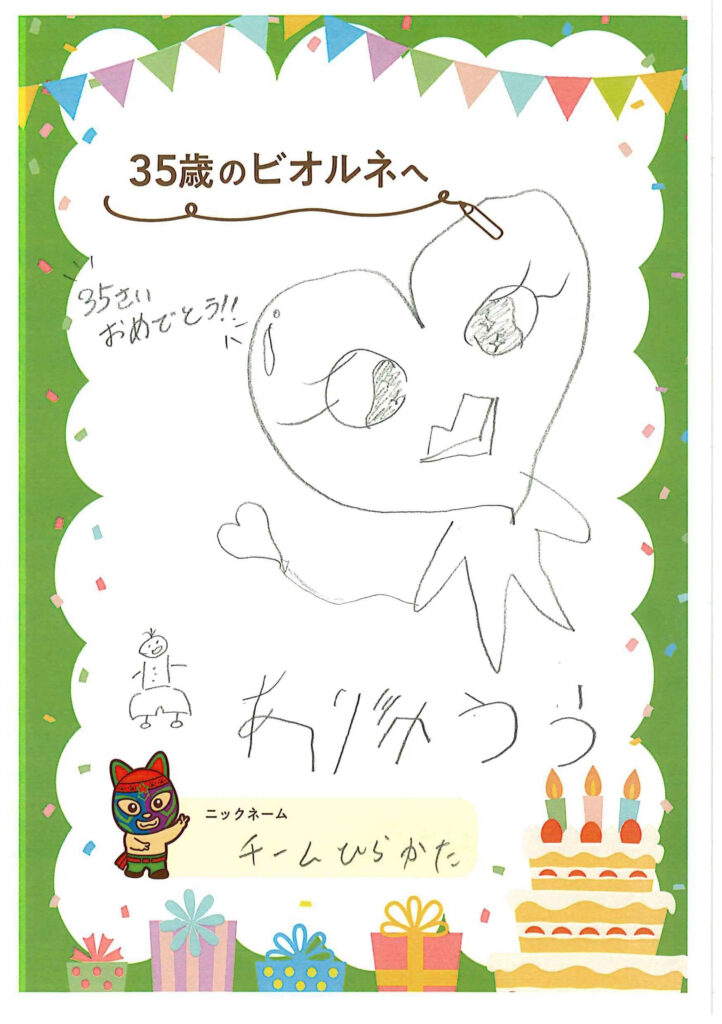 35歳のビオルネへ
35さい
おめでとう!!
ありがとう
ニックネーム
チームひらかた